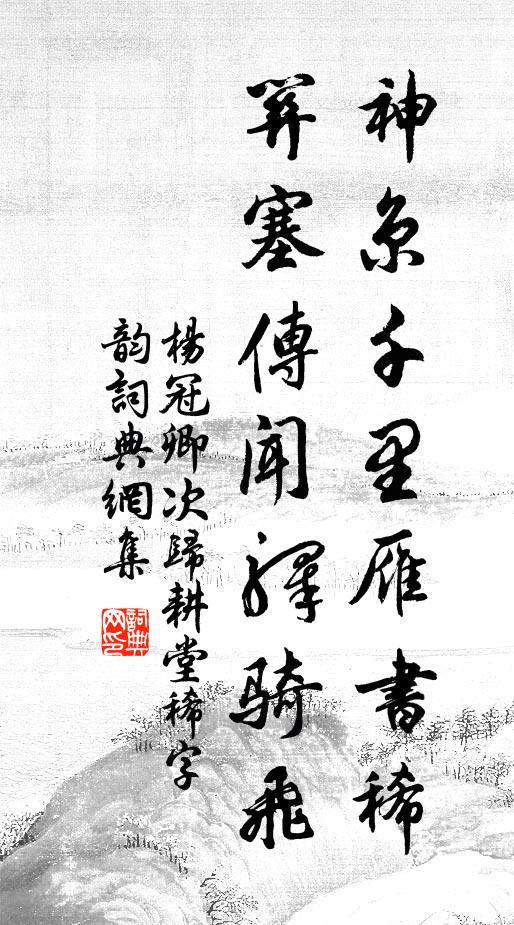 神京千里雁書稀
并塞傳聞驛騎飛
楊冠卿次歸耕堂稀字
韵詞典網集
詞典
网印